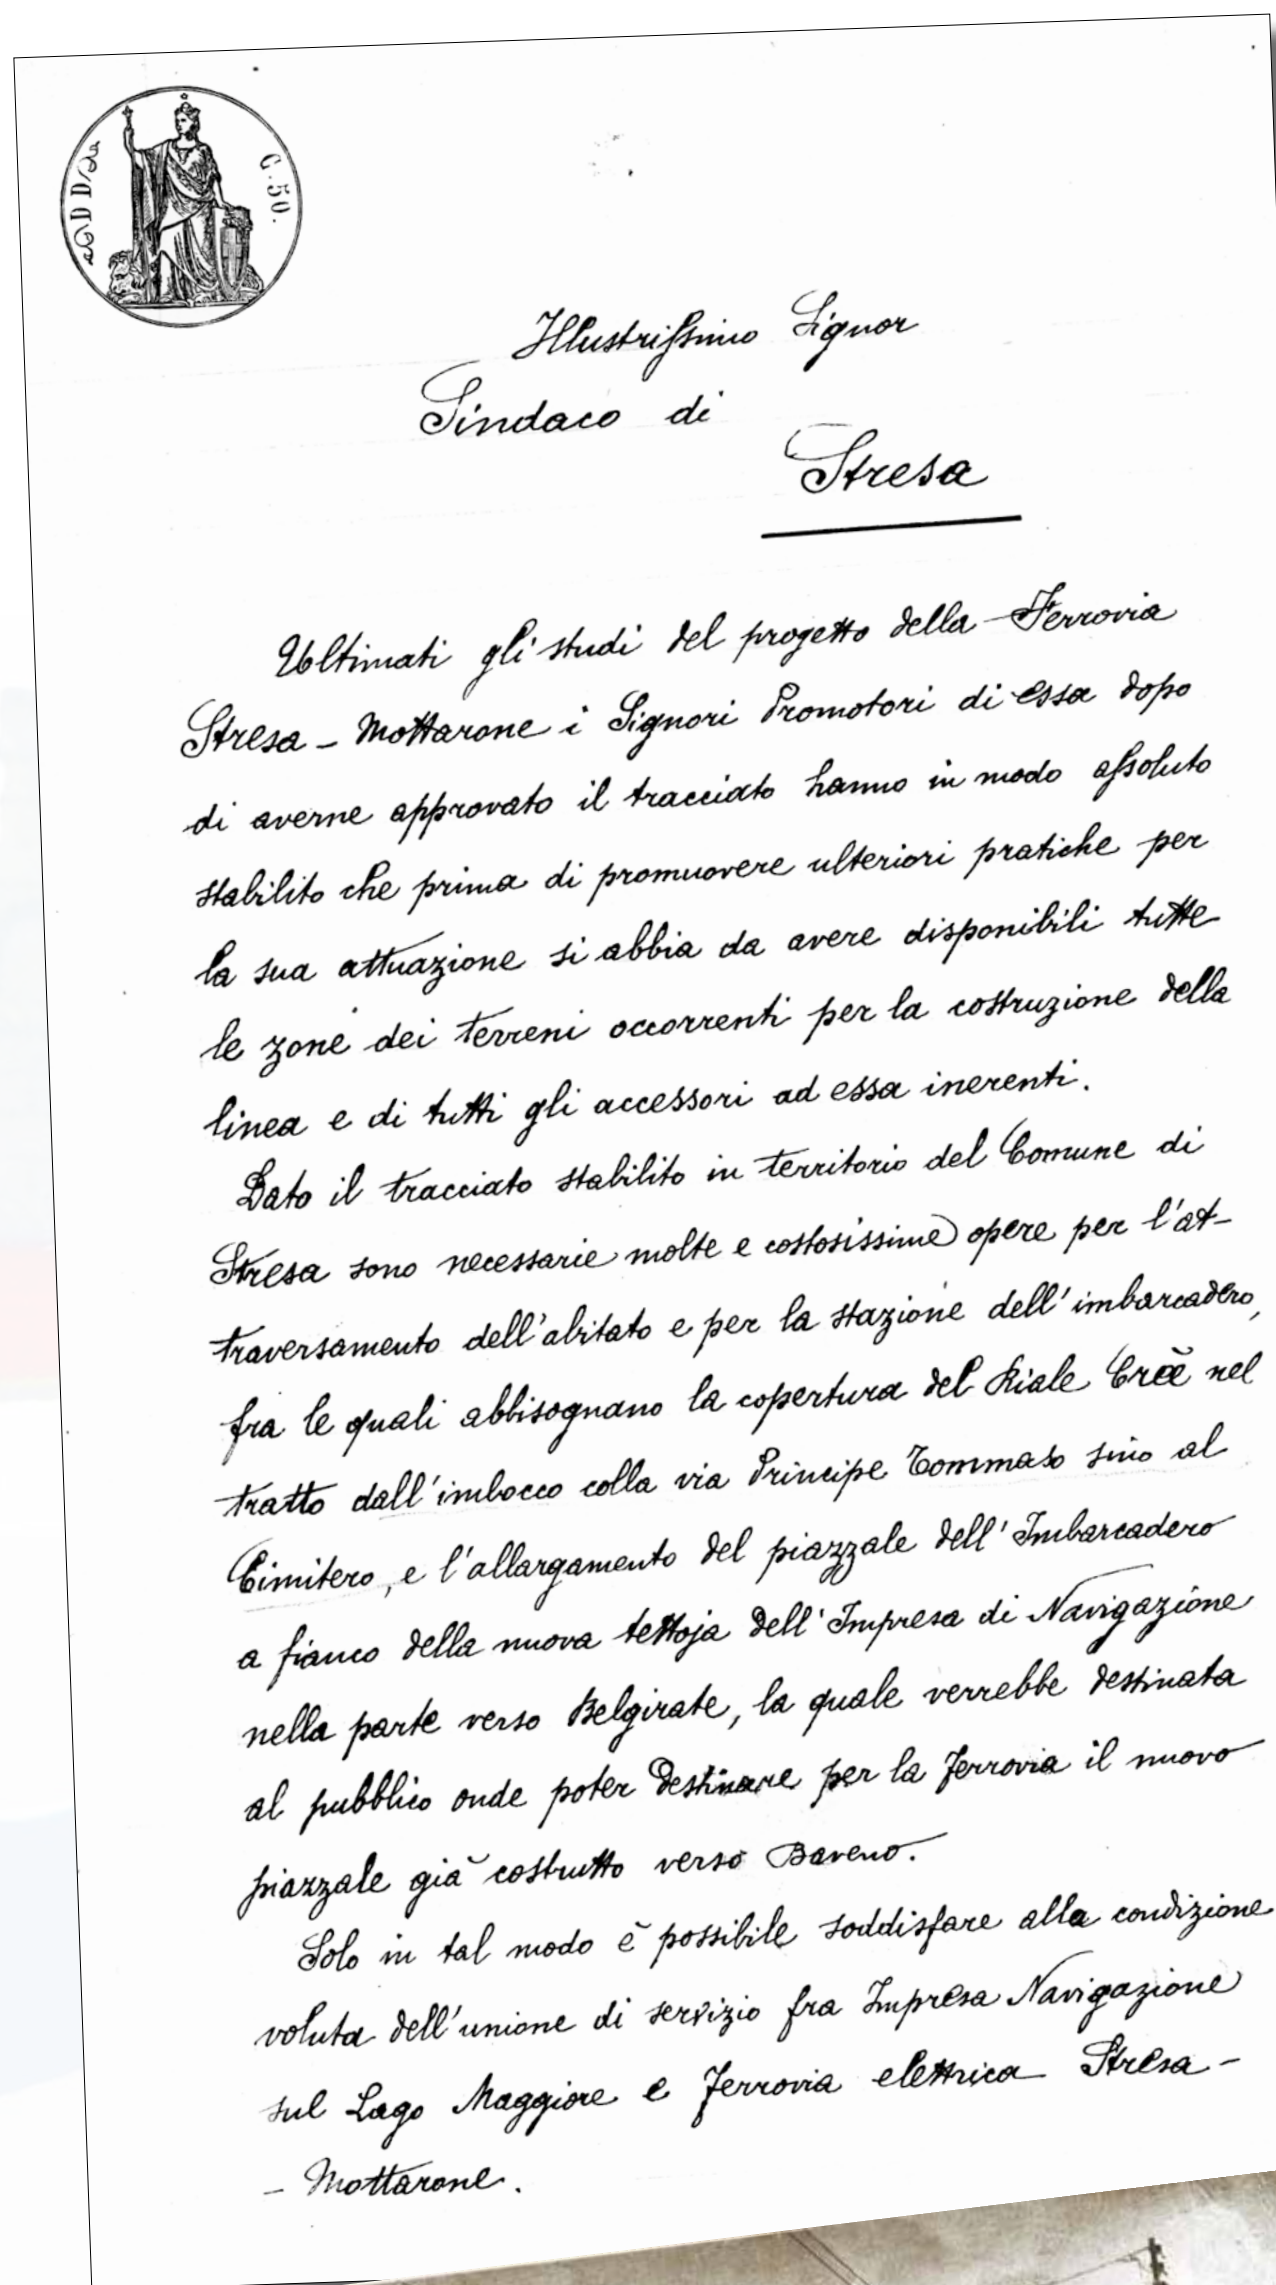 C. 50.
Illustrissimo Signor
Sindaco di
Stresa
Ultimati gli studi del progetto della Ferrovia
Stresa - Mottarone i Signori Promotori di essa dopo
di averne approvato il tracciato hanno in modo assoluto
stabilito che prima di promuovere ulteriori pratiche per
la sua attuazione si abbia da avere disponibili tutte
le zone dei terreni occorrenti per la costruzione della
linea e di tutti gli accessori ad essa inerenti.
Dato il tracciato stabilito in territorio del Comune di
Stresa sono necessarie molte e costosissime opere per l'at-
traversamento dell'abitato e per la stazione dell'imbarcadero,
fra le quali abbisognano la copertura del Riale Crèe nel
tratto dall'imbocco colla via Principe Tommaso sino al
Cimitero, e l'allargamento del piazzale dell'Imbarcadero
a fianco della nuova tettoja dell'Impresa di Navigazione
nella parte verso Belgirate, la quale verrebbe destinata
al pubblico onde poter destinare per la ferrovia il nuovo
piazzale già costrutto verso Baveno.
Solo in tal modo è possibile soddisfare alla condizione
voluta dell'unione di servizio fra Impresa Navigazione
sul Lago Maggiore e Ferrovia elettrica Stresa -
- Mottarone.